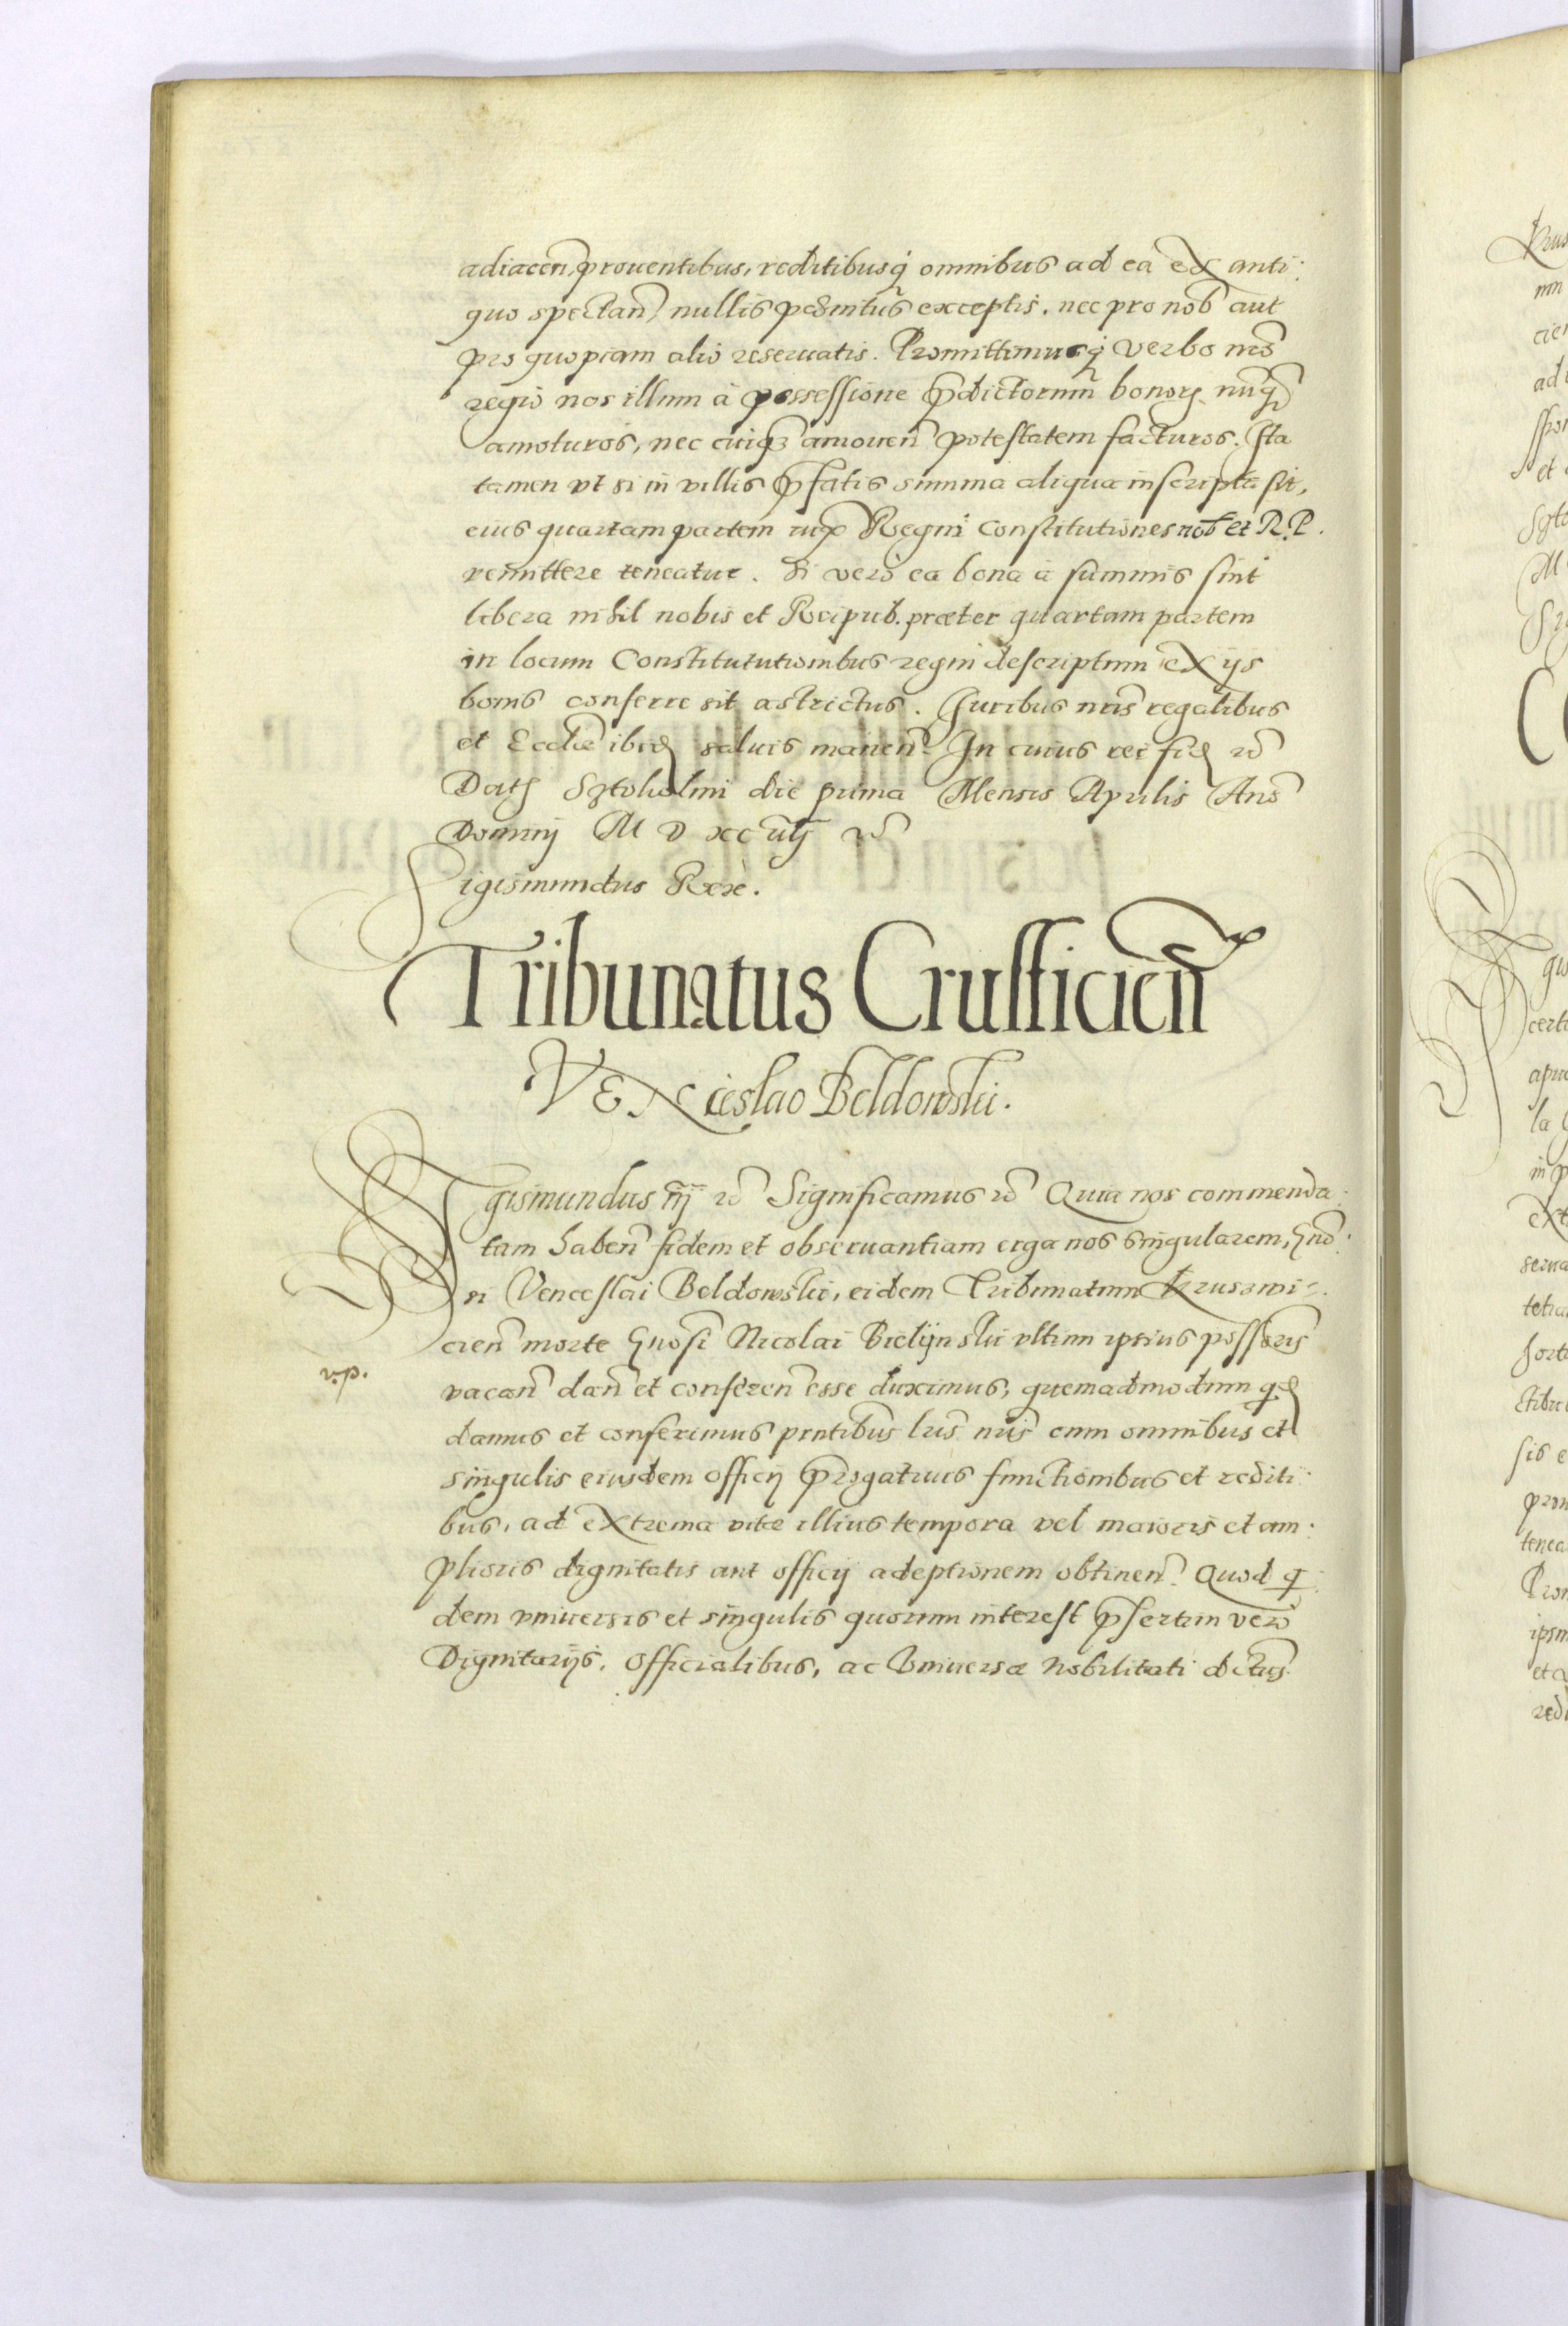 adiacen̄, prouentibus, reditibusq́ omnibus ad ea ex anti:
quo spectan̄, nullis penitus exceptis, nec pro nob̄ aut
pro quopiam alio reseruatis. Promittimusq́ verbo nr̄o
regio nos illum à possessione p̄dictorum bonoꝝ nunq̄
amoturos, nec cuiqꝫ amouen̄ potestatem facturos. Ita
tamen vt si in villis p̄fatis summa aliqua inscripta sit,
eius quartam partem iuxᵃ Regni Constitutiones nob̄ et R.P.
remittere teneatur. Si verò ea bona à summis sint
libera nihil nobis et Reipub. præter quartam partem
in locum Constitututionibus regni descriptum ex ijs
bonis conferre sit astrictus. Iuribus nr̄is regalibus
et Eccl̄iæ ibid̄ saluis manen̄. In cuius rei fid̄ ꝛc̄
Datꝫ Sztokolmi die prima Mensis Aprilis An̄o
Dominj M D xc iiij ꝛc̄
Sigismundus Rex.
Tribunatus Crusficien̄
VENcieslao Beldowski.
Sigismundus iij ꝛc̄ Significamus ꝛc̄ Quia nos commenda:
tam haben̄ fidem et obseruantiam erga nos singularem, Gn̄o:
si Venceslai Beldowski, eidem Tribunatum Kruswi=
cien̄ morte Gn̄osi Nicolai Bielijnski vltim̄ ipsius poss̄oris
vacan̄ dan̄ et conferen̄ esse duximus, quemadmodum qd̄
damus et conferimus pn̄tibus lr̄is nr̄is cum omnibus et
singulis eiusdem officij p̄rogatiuis functionibus et rediti:
bus, ad extrema vitæ illius tempora vel maioris et am:
plioris dignitatis aut officij adeptionem obtinen̄. Quod q̄:
dem vniuersis et singulis quorum interest p̄sertim verò
Dignitarijs, Officialibus, ac Vniuersæ Nobilitati